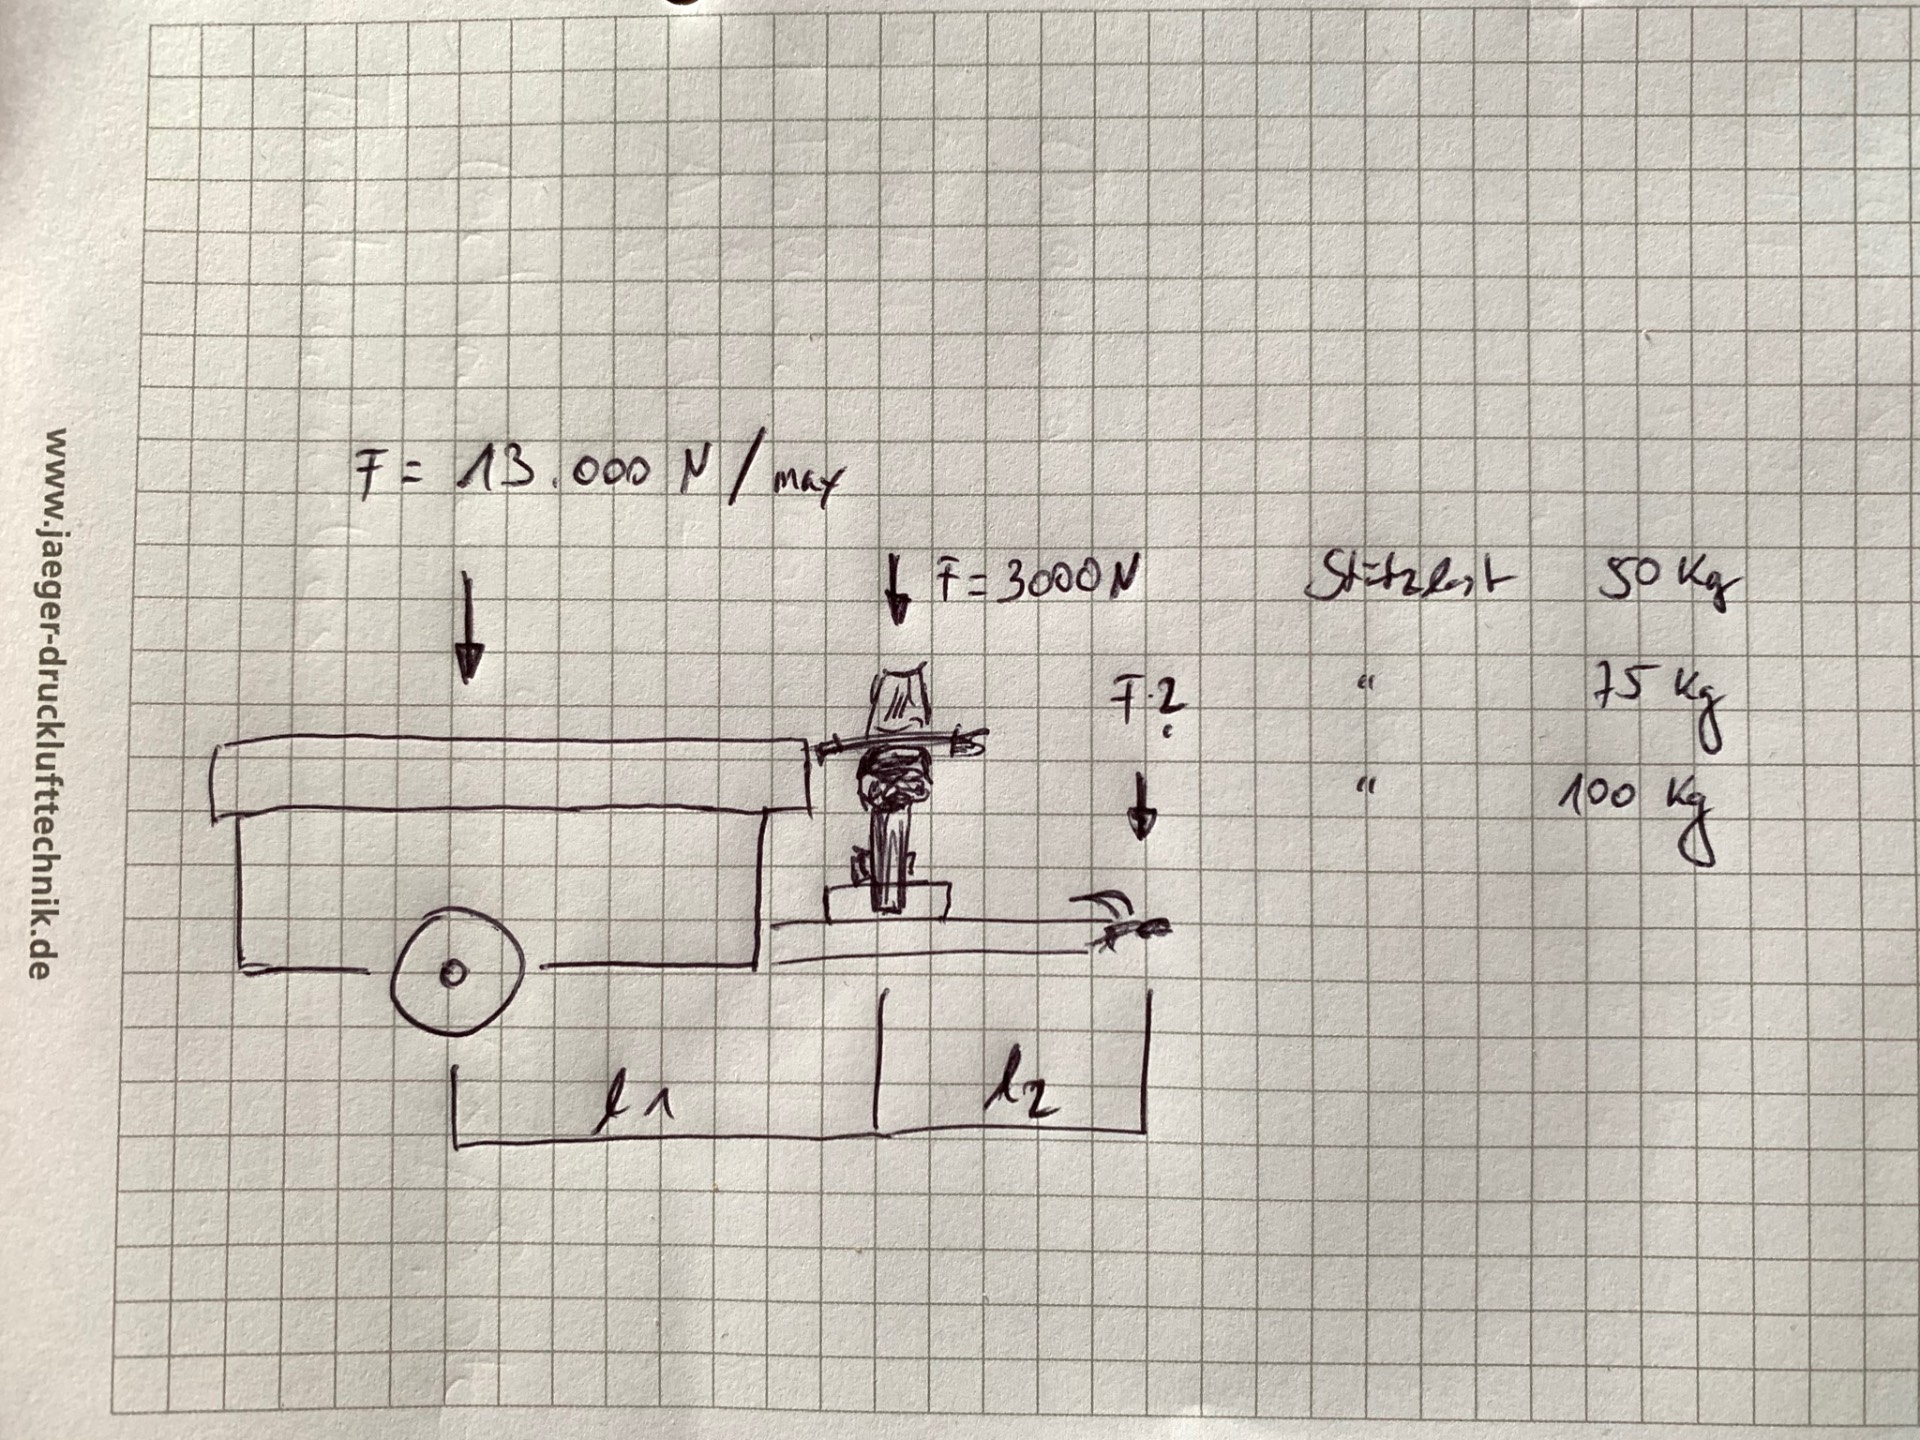 www.jaeger-drucklufttechnik.de
F = 13.000 N / max
F = 3000 N
Stützlast 50 Kg
F?
" 75 Kg
" 100 Kg
l1
l2